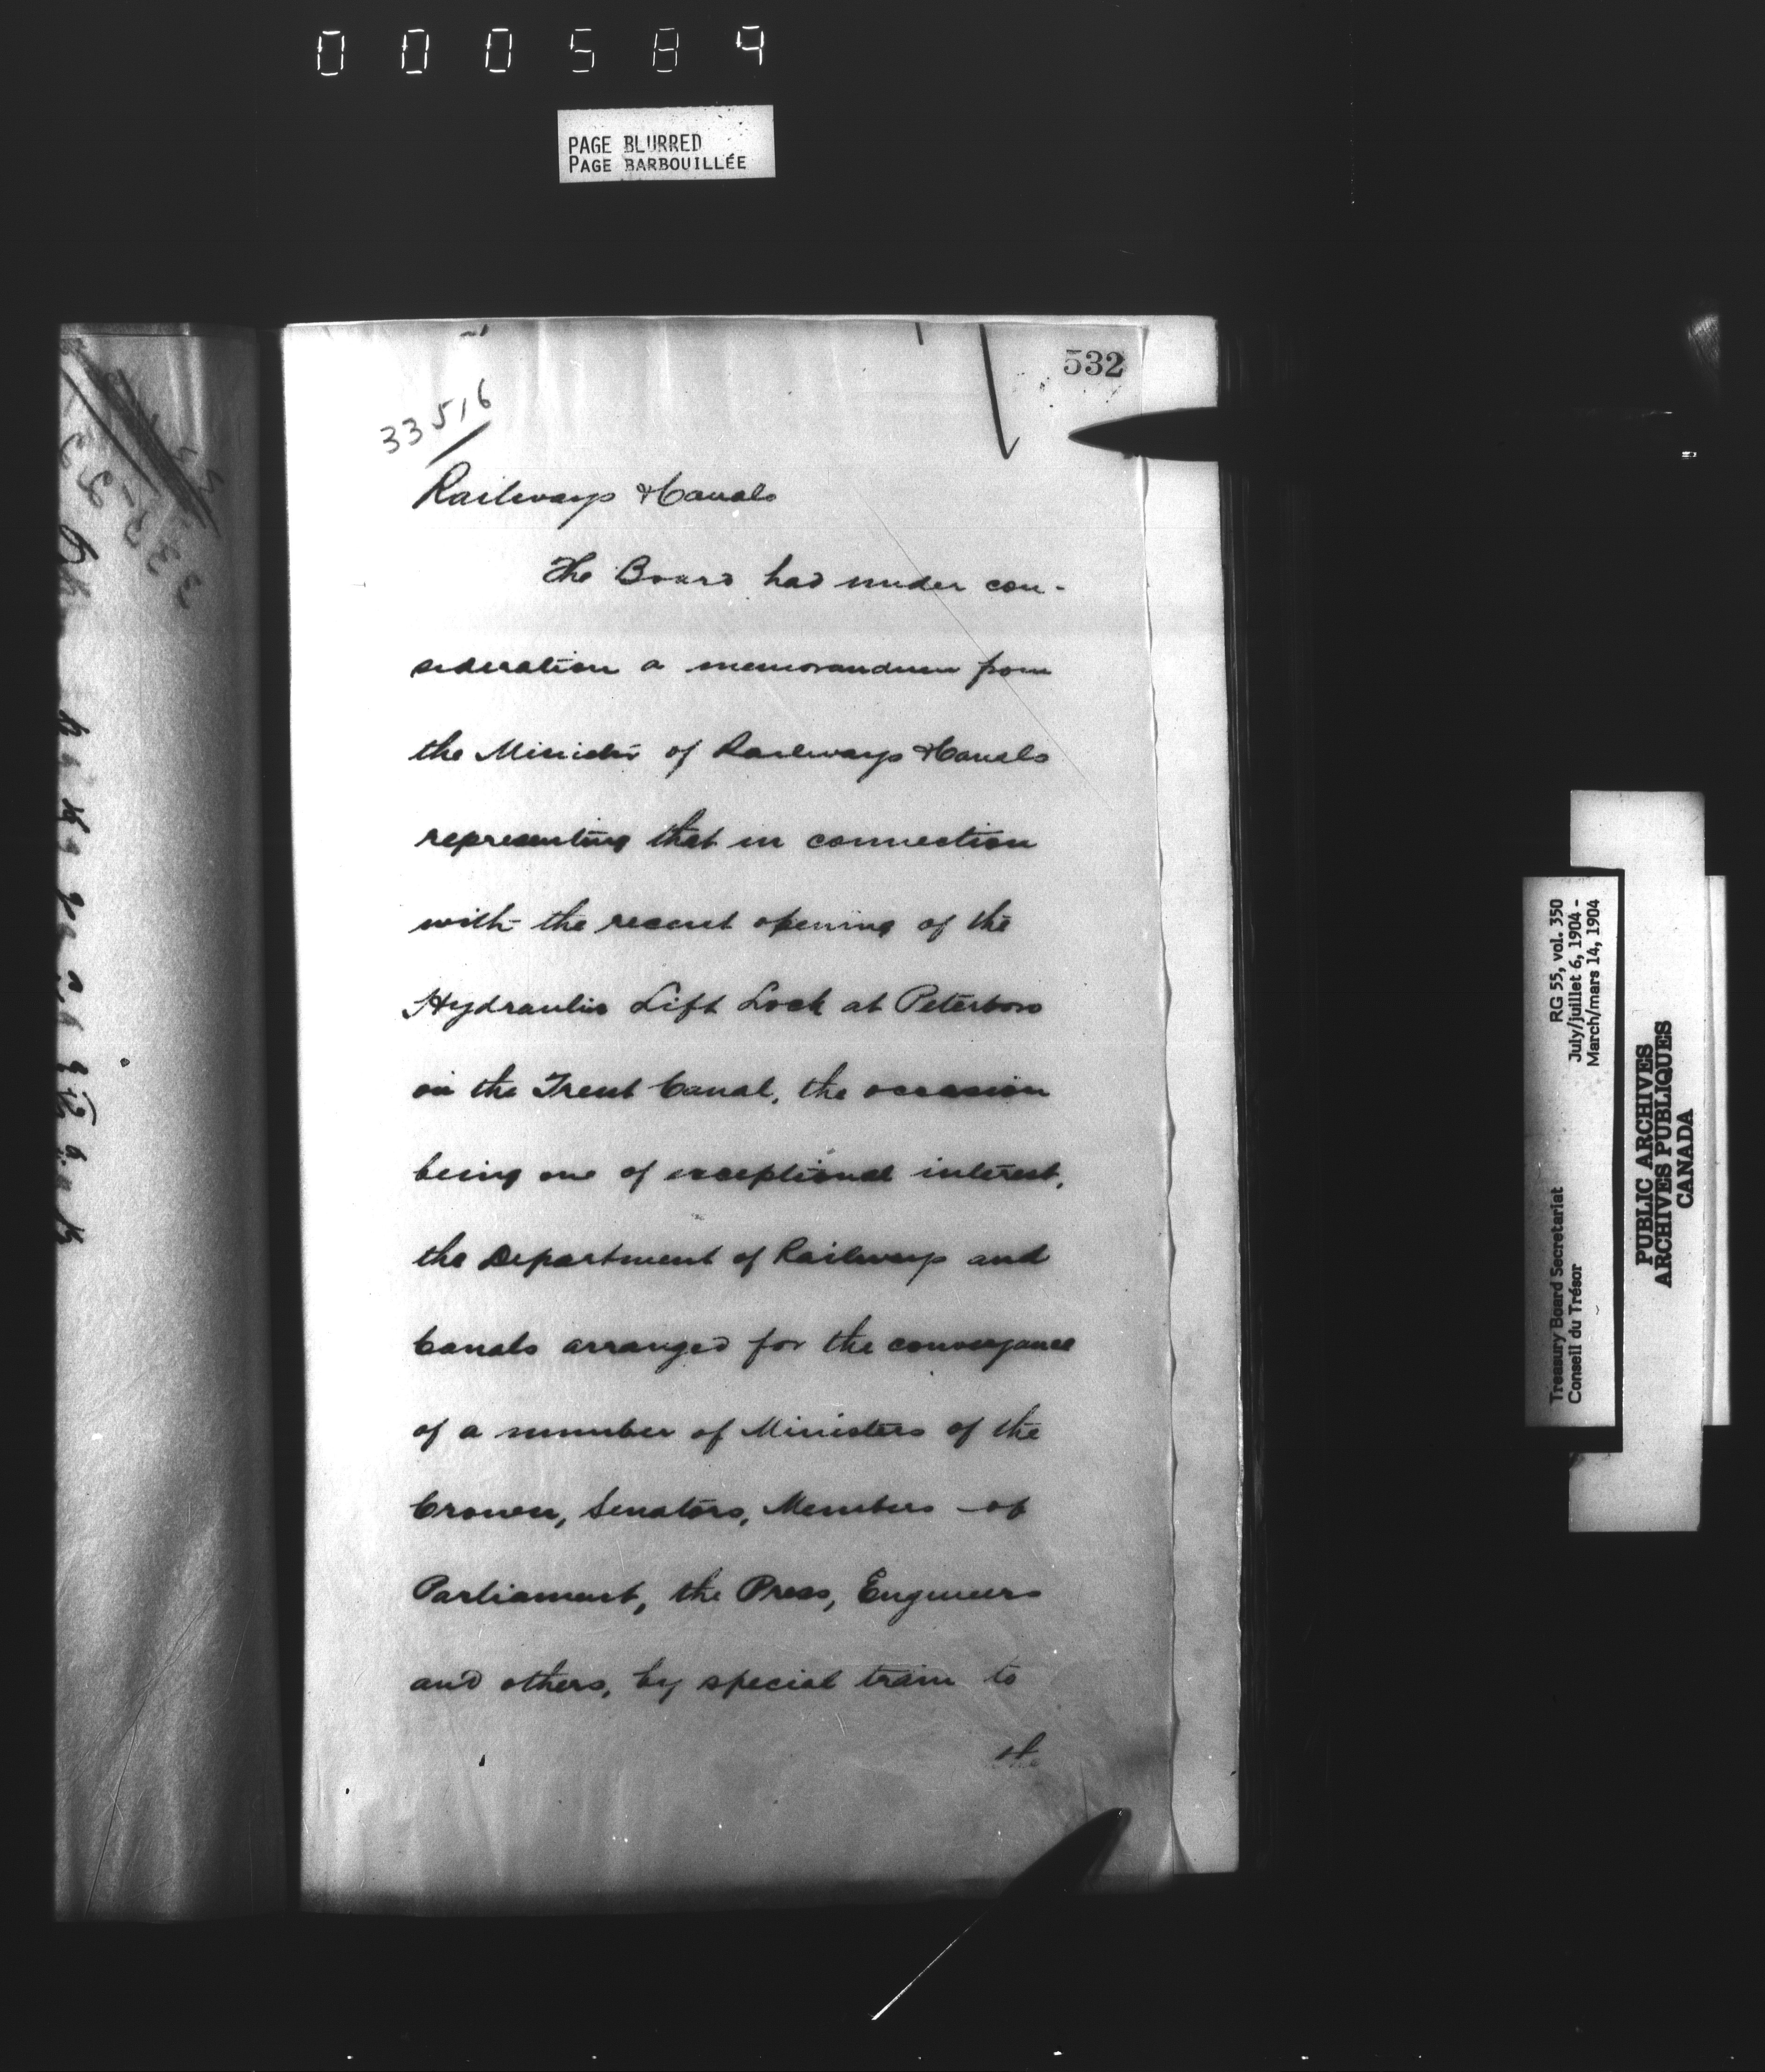 000584
PAGE BLURRED
PAGE BARBOUILLÉE
532
33516
Railways & Canals
The Board had under con-
sideration a memorandum from
the Minister of Railways & Canals
representing that in connection
with the recent opening of the
Hydraulic Lift Lock at Peterboro
on the Trent Canal, the occasion
being one of exceptional interest,
the Department of Railways and
Canals arranged for the conveyance
of a number of Ministers of the
Crown, Senators, Members of
Parliament, the Press, Engineers
and others, by special train to
the
Treasury Board Secretariat RG 55, vol. 350
Conseil du Trésor July/juillet 6, 1904 -
March/mars 14, 1904
PUBLIC ARCHIVES
ARCHIVES PUBLIQUES
CANADA